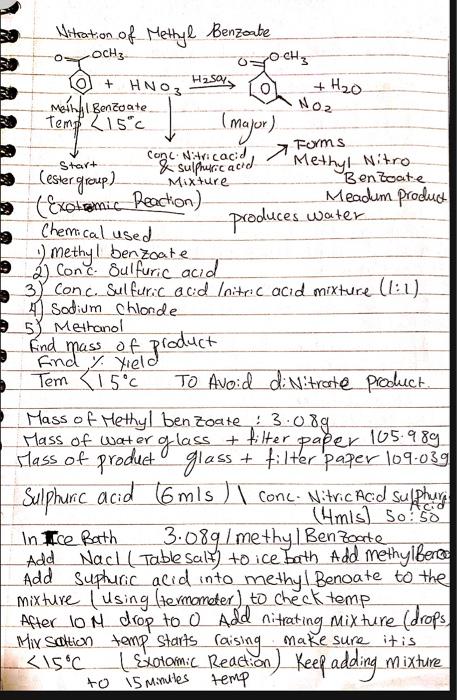 Nitration of Methyl Benzoate
O OCH3 O O CH3
+ HNO3 H2SO4 + H2O
NO2
Methyl Benzoate
Temp <15°c (major)
Start Conc. Nitric acid Forms
(ester group) & sulphuric acid Methyl Nitro
Mixture Benzoate
(Exotomic Reaction) Meadum product
produces water
Chemical used
1) methyl benzoate
2) Conc. Sulfuric acid
3) Conc. Sulfuric acid /nitric acid mixture (1:1)
4) Sodium Chloride
5) Methanol
Find mass of product
Find % Yield
Tem <15°c To Avoid diNitrate product.
Mass of Methyl benzoate : 3.08g
Mass of water glass + filter paper 105.98g
Mass of product glass + filter paper 109.03g
Sulphuric acid (6mls) \ Conc. Nitric Acid sulphuric
Acid
(4mls) 50:50
In Ice Bath 3.08g/methyl Benzoate
Add Nacl (Table salt) to ice bath Add methyl Benzo
Add Suphuric acid into methyl Benoate to the
mixture (using (termometer) to check temp
After 10 M drop to 0 Add nitrating mixture (drops
Mix temp starts raising make sure it is
<15°C (Exotomic Reaction) Keep adding mixture
to 15 minutes temp